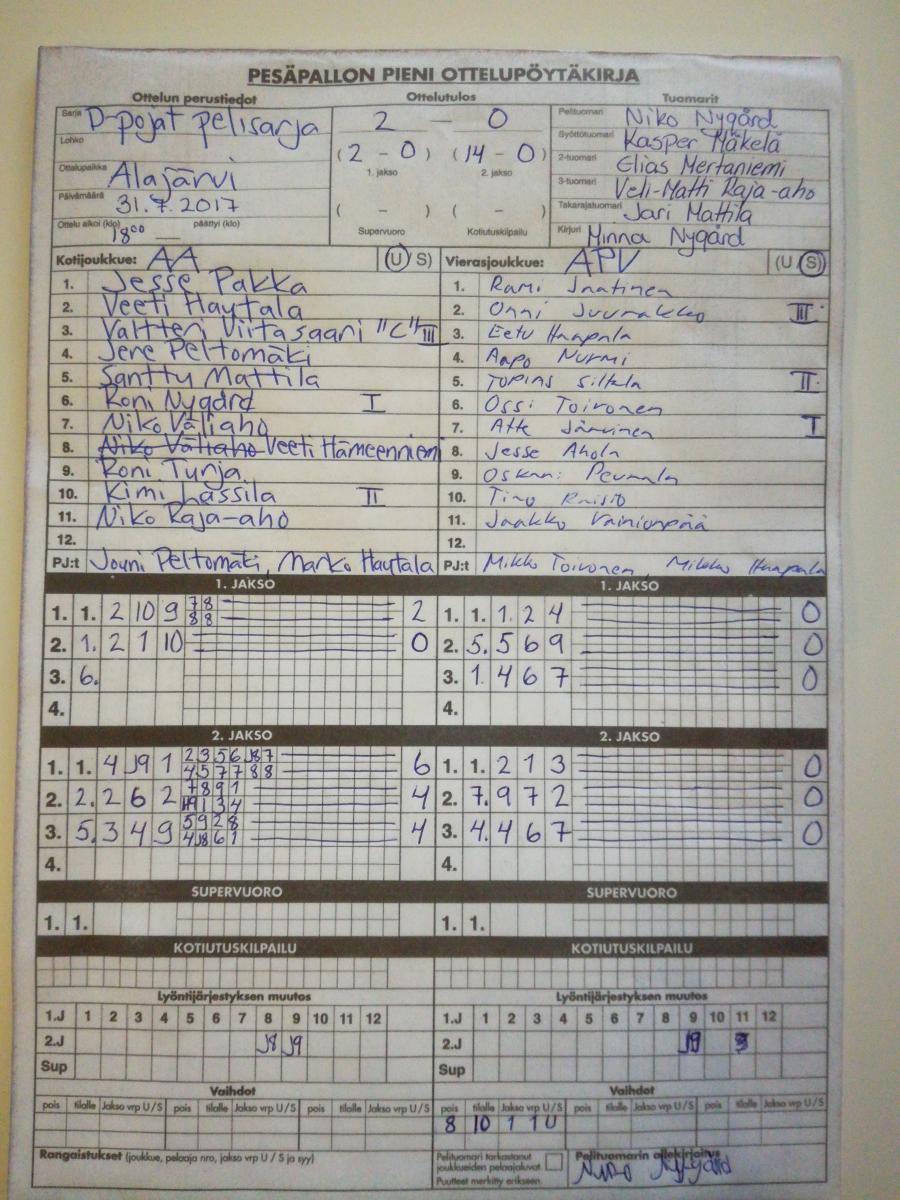 PESÄPALLON PIENI OTTELUPÖYTÄKIRJA
Ottelun perustiedot Ottelutulos Tuomarit
Sarja D-pojat pelisarja
Lohko
Ottelupaikka Alajärvi
Päivämäärä 31.7.2017
Ottelu alkoi (klo) 18⁰⁰ — päättyi (klo)
2 — 0
(2 - 0) (14 - 0)
1. jakso 2. jakso
( - ) ( - )
Supervuoro Kotiutuskilpailu
Pelituomari Niko Nygård
Syöttötuomari Kasper Mäkelä
2-tuomari Elias Mertaniemi
3-tuomari Veli-Matti Raja-aho
Takarajatuomari Jari Mattila
Kirjuri Minna Nygård
Kotijoukkue: AA (U/S)
1. Jesse Pakka
2. Veeti Hautala
3. Valtteri Viitasaari "C" III
4. Jere Peltomäki
5. Santtu Mattila
6. Roni Nygård I
7. Niko Väliaho
8. Niko Väliaho Veeti Hämeenniemi
9. Roni Turja
10. Kimi Lassila II
11. Niko Raja-aho
12.
PJ:t Jouni Peltomäki, Marko Hautala
Vierasjoukkue: APV (U/S)
1. Rami Jaatinen
2. Onni Juurakko III
3. Eetu Haapala
4. Aapo Nurmi
5. TOPIAS Siltala II
6. Ossi Toivonen
7. Atte Järvinen I
8. Jesse Ahola
9. Oskari Peurala
10. Tino Raisio
11. Jaakko Vainionpää
12.
PJ:t Mikko Toivonen, Mikko Haapala
1. JAKSO
1. 1. 2 10 9 7 8 2
8 8
2. 1. 2 1 10 0
3. 6.
4.
1. JAKSO
1. 1. 1 2 4 0
2. 5. 5 6 9 0
3. 1. 4 6 7 0
4.
2. JAKSO
1. 1. 4 J9 1 2 3 5 6 J8 7 6
4 5 7 7 8 8
2. 2. 2 6 2 7 8 9 1 4
3. 5. 3 4 9 5 9 2 8 4
4 J8 6 1
4.
2. JAKSO
1. 1. 2 1 3 0
2. 7. 9 7 2 0
3. 4. 4 6 7 0
4.
SUPERVUORO
1. 1.
SUPERVUORO
1. 1.
KOTIUTUSKILPAILU
KOTIUTUSKILPAILU
Lyöntijärjestyksen muutos
1.J 1 2 3 4 5 6 7 8 9 10 11 12
2.J J8 J9
Sup
Lyöntijärjestyksen muutos
1.J 1 2 3 4 5 6 7 8 9 10 11 12
2.J
Sup
Vaihdot
pois tilalle Jakso vrp U/S pois tilalle Jakso vrp U/S pois tilalle Jakso vrp U/S
Vaihdot
pois tilalle Jakso vrp U/S pois tilalle Jakso vrp U/S pois tilalle Jakso vrp U/S
8 10 1 1 U
Rangaistukset (joukkue, pelaaja nro, jakso vrp U / S ja syy)
Pelituomari tarkastanut
joukkueiden pelaajaluvat.
Puutteet merkitty erikseen.
Pelituomarin allekirjoitus
Niko Nygård